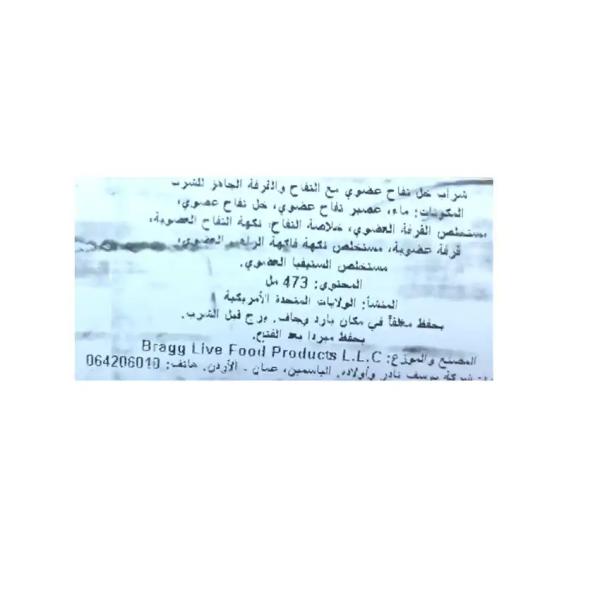 شراب خل تفاح عضوي مع التفاح والقرفة الجاهز للشرب
المكونات: ماء، عصير تفاح عضوي، خل تفاح عضوي،
مستخلص القرفة العضوي، خلاصة التفاح، نكهة التفاح العضوية،
قرفة عضوية، مستخلص نكهة فاكهة الراهب العضوي،
مستخلص الستيفيا العضوي.
المحتوى: 473 مل
المنشأ: الولايات المتحدة الأمريكية
يحفظ مغلقاً في مكان بارد وجاف. يرج قبل الشرب.
يحفظ مبرداً بعد الفتح.
المصنع والموزع: Bragg Live Food Products L.L.C
شركة يوسف نادر وأولاده. الياسمين، عمان - الأردن. هاتف: 064206010